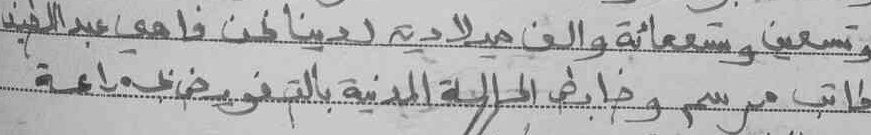 وتسعين وتسعمائة والف ميلادية لدينا نحن قاضي عبد الحفيظ
كاتب مرسم وضابط الحالة المدنية بالتفويض بجماعة